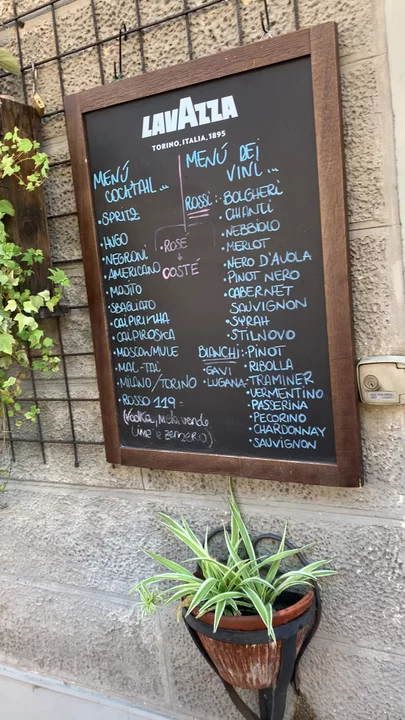 LAVAZZA
TORINO, ITALIA, 1895
MENÚ
COCKTAIL...
• SPRITZ
• HUGO
• NEGRONI
• AMERICANO
• MOJITO
• SBAGLIATO
• CAIPIRINHA
• CAIPIROSKA
• MOSCOWMULE
• MAI-TAI
• MILANO/TORINO
• ROSSO 119 =
(Vodka, mela verde
lime e zenzero)
• ROSÉ
COSTÉ
MENÚ DEI
VINI...
ROSSI: • BOLGHERI
• CHIANTI
• NEBBIOLO
• MERLOT
• NERO D'AVOLA
• PINOT NERO
• CABERNET
SAUVIGNON
• SYRAH
• STILNOVO
BIANCHI: • PINOT
• GAVI
• LUGANA
• RIBOLLA
• TRAMINER
• VERMENTINO
• PASSERINA
• PECORINO
• CHARDONNAY
• SAUVIGNON